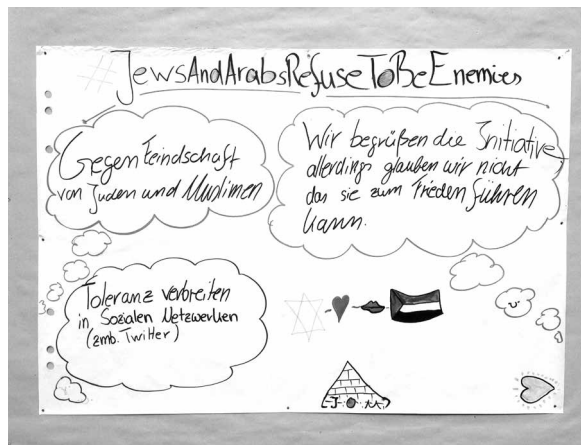 #JewsAndArabsRefuseToBeEnemies
Gegen Feindschaft
von Juden und Muslimen
Wir begrüßen die Initiative,
allerdings glauben wir nicht
das sie zum Frieden führen
kann.
Toleranz verbreiten
in Sozialen Netzwerken
(zmb. Twitter)